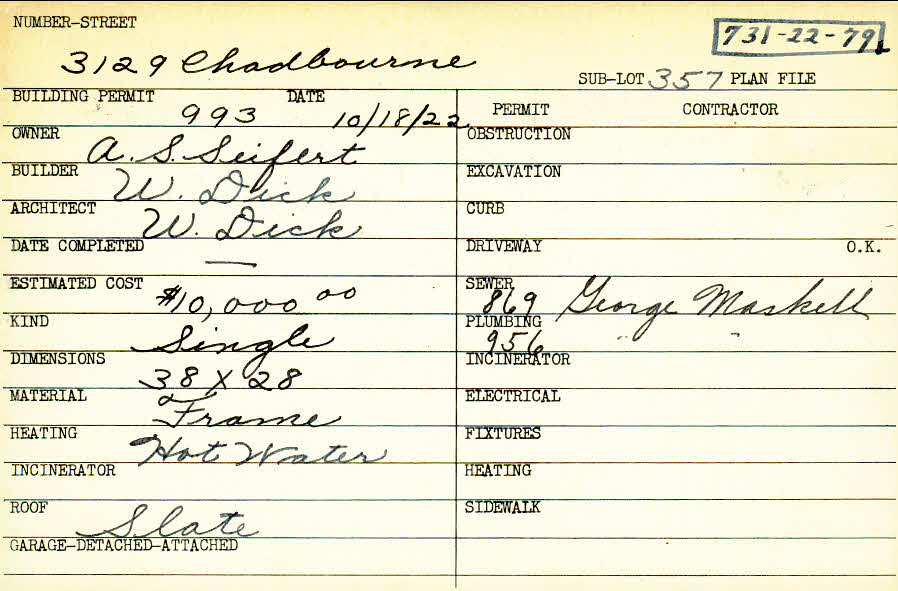 NUMBER-STREET
731-22-79
3129 Chadbourne
SUB-LOT 357 PLAN FILE
BUILDING PERMIT 993 DATE 10/18/22
OWNER A. S. Seifert
BUILDER W. Dick
ARCHITECT W. Dick
DATE COMPLETED —
ESTIMATED COST $10,000 00
KIND Single
DIMENSIONS 38 X 28
MATERIAL Frame
HEATING Hot Water
INCINERATOR
ROOF Slate
GARAGE-DETACHED-ATTACHED
PERMIT CONTRACTOR
OBSTRUCTION
EXCAVATION
CURB
DRIVEWAY O.K.
SEWER 869 George Maskell
PLUMBING 956 " "
INCINERATOR
ELECTRICAL
FIXTURES
HEATING
SIDEWALK